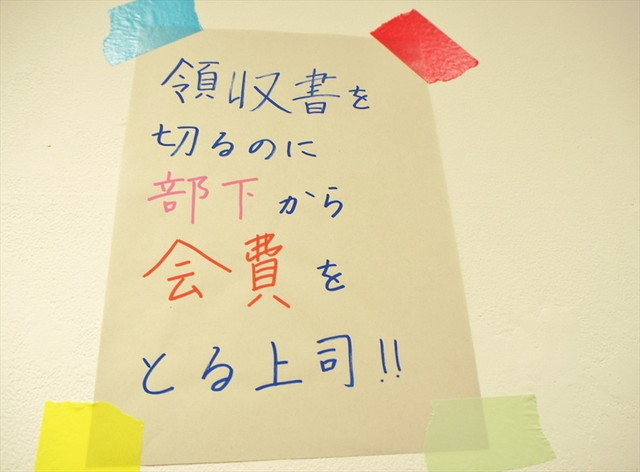 領収書を
切るのに
部下から
会費を
とる上司!!